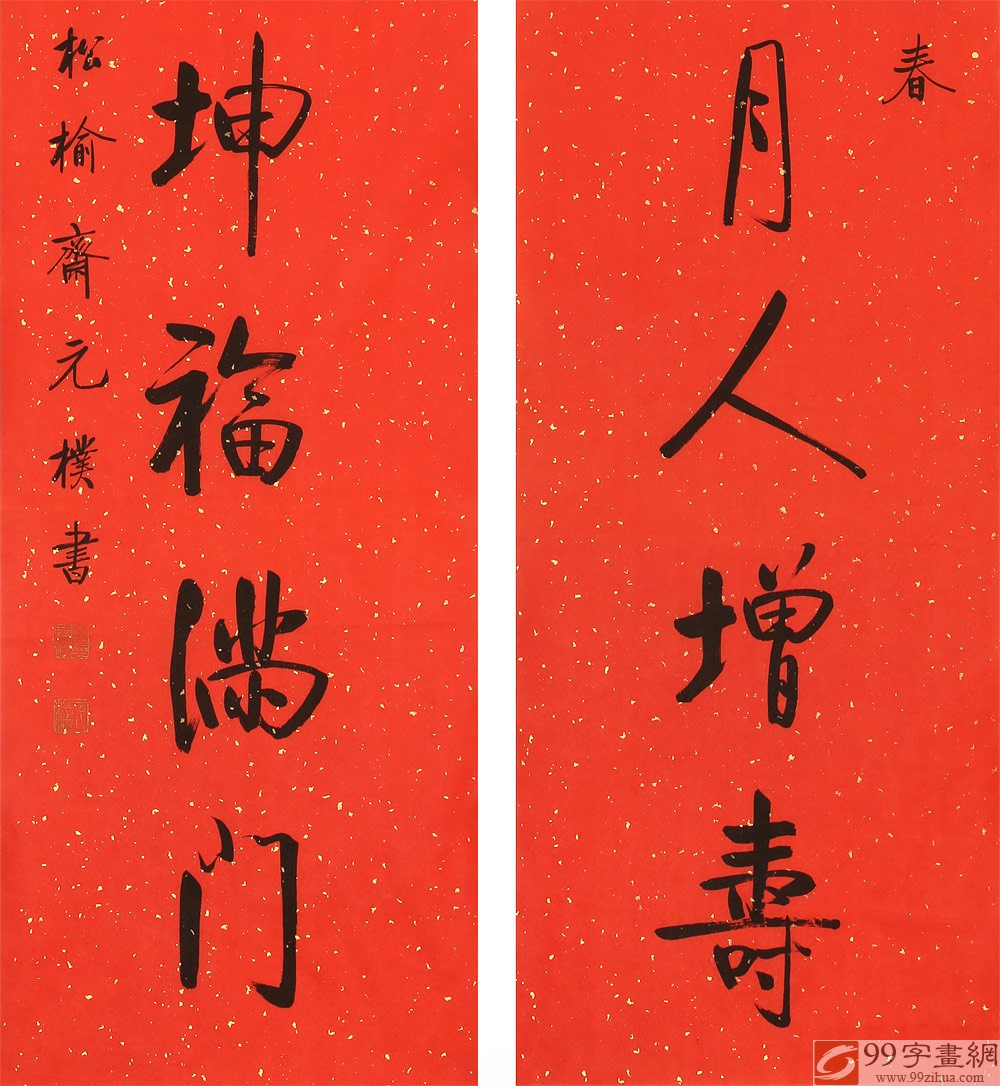 春
月人增壽
坤福满门
松榆齋元樸书
99字畫網
www.99zihua.com